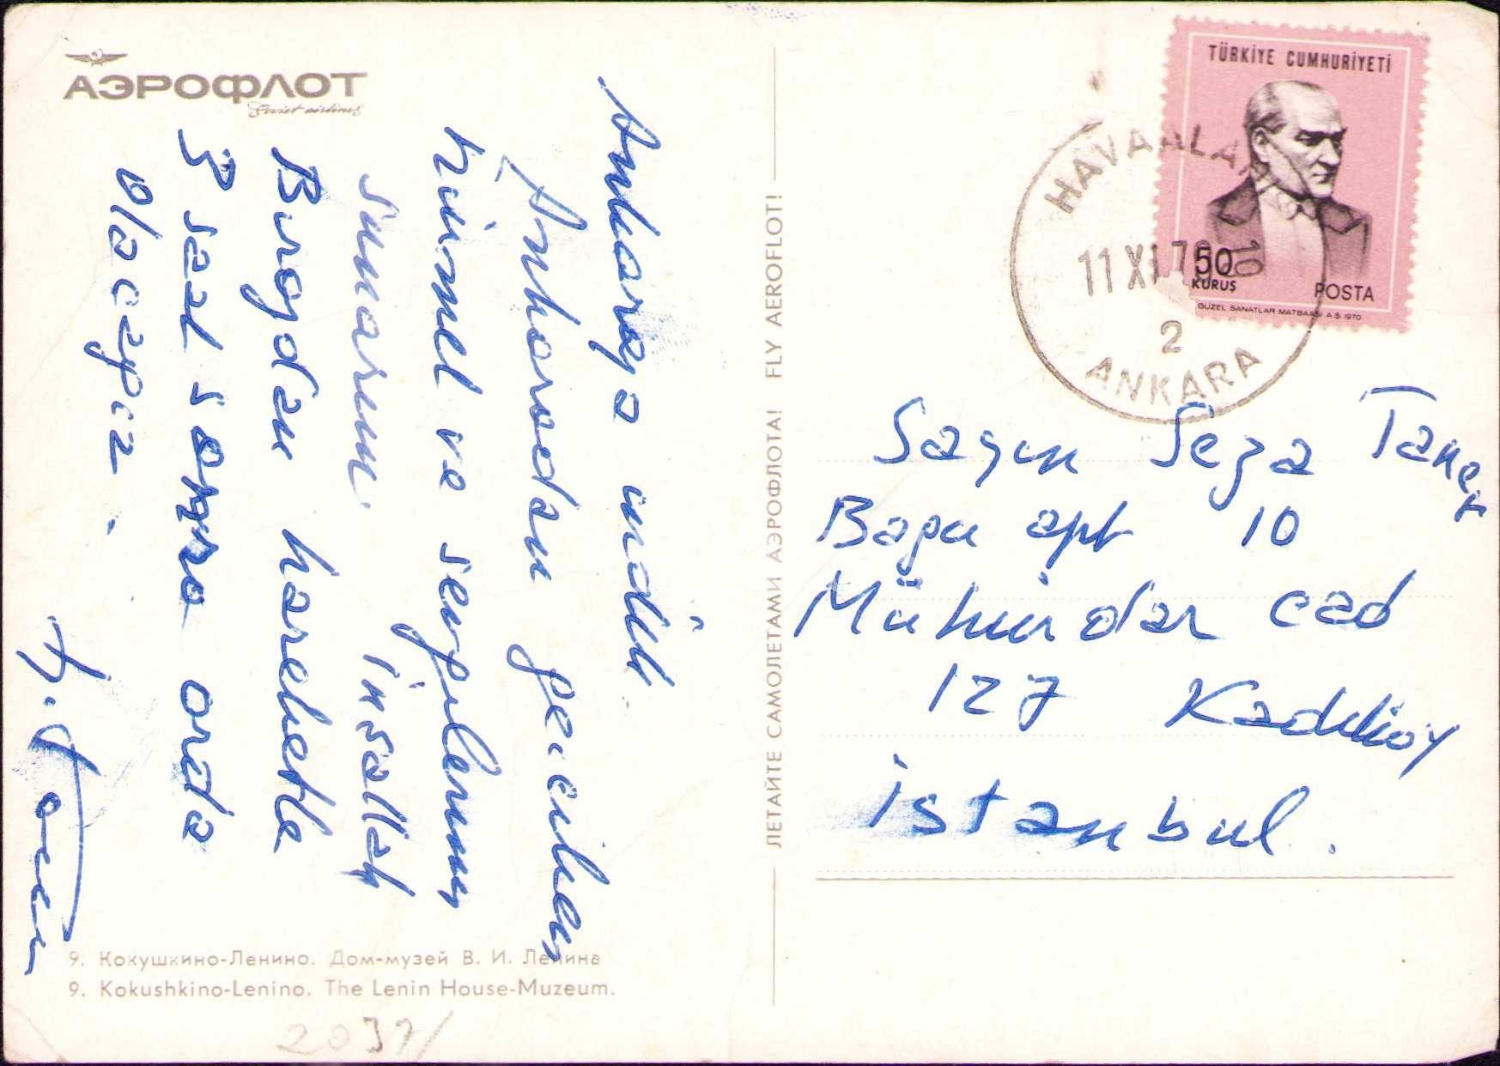 АЭРОФЛОТ
Soviet airlines
Ankaraya indik.
Ankaradan geçerken
hürmet ve sevgilerimi
sunarım. İnşallah
Buradan hareketle
3 saat sonra orda
olacağız.
ЛЕТАЙТЕ САМОЛЕТАМИ АЭРОФЛОТА! FLY AEROFLOT!
9. Кокушкино-Ленино. Дом-музей В. И. Ленина
9. Kokushkino-Lenino. The Lenin House-Muzeum.
2037/
TÜRKİYE CUMHURİYETİ
50
KURUŞ
POSTA
GÜZEL SANATLAR MATBAASI A.Ş. 1970
HAVAALANI
11 XI 70 10
2
ANKARA
Sayın Seza Taner
apt 10
Mühürdar cad
127 Kadıköy
İstanbul.